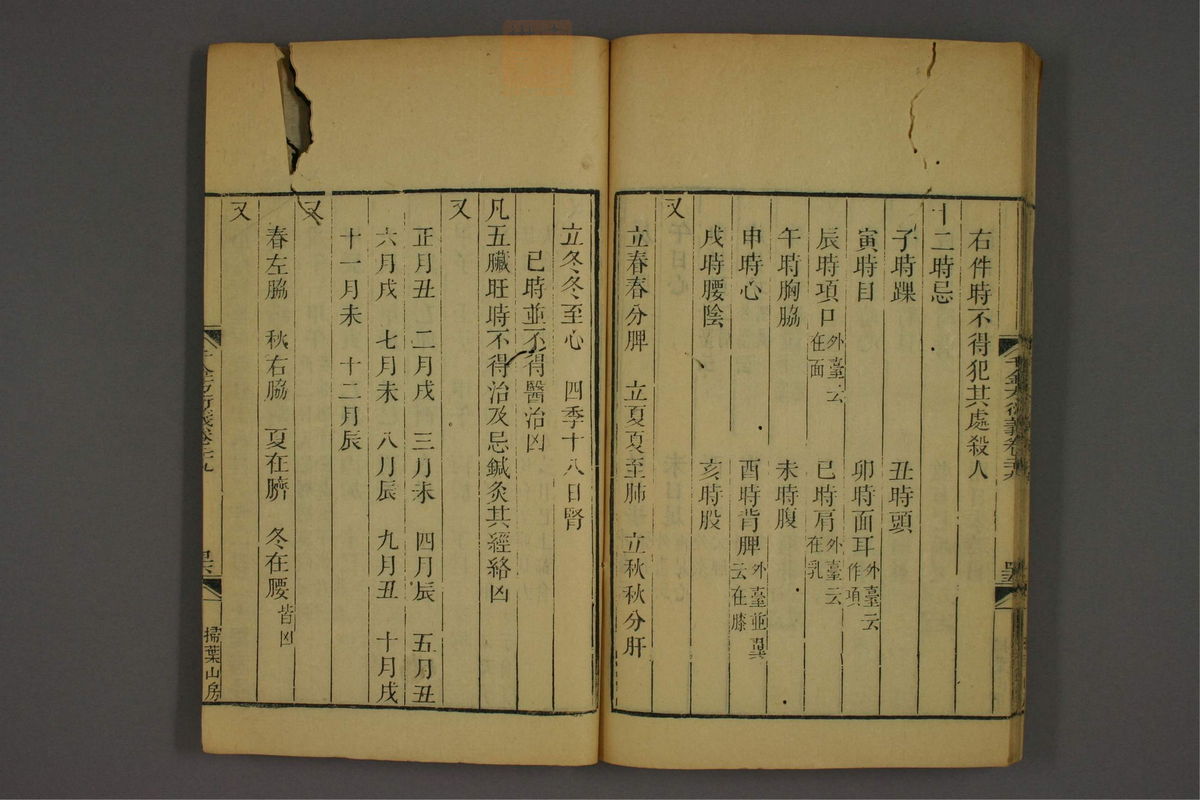 右件時不得犯其處殺人
十二時忌
子時踝　丑時頭
寅時目　卯時面耳外臺云作項
辰時項口外臺云在面　巳時肩外臺云在乳
午時胸脇　未時腹
申時心　酉時背脾外臺並巽云在膝
戌時腰陰　亥時股
又
立春春分脾　立夏夏至肺　立秋秋分肝
立冬冬至心　四季十八日腎
已時並不得醫治凶
凡五臟旺時不得治及忌鍼灸其經絡凶
又
正月丑　二月戌　三月未　四月辰　五月丑
六月戌　七月未　八月辰　九月丑　十月戌
十一月未　十二月辰
又
春左脇　秋右脇　夏在臍　冬在腰皆凶
又
千金方衍義卷二十九
掃葉山房